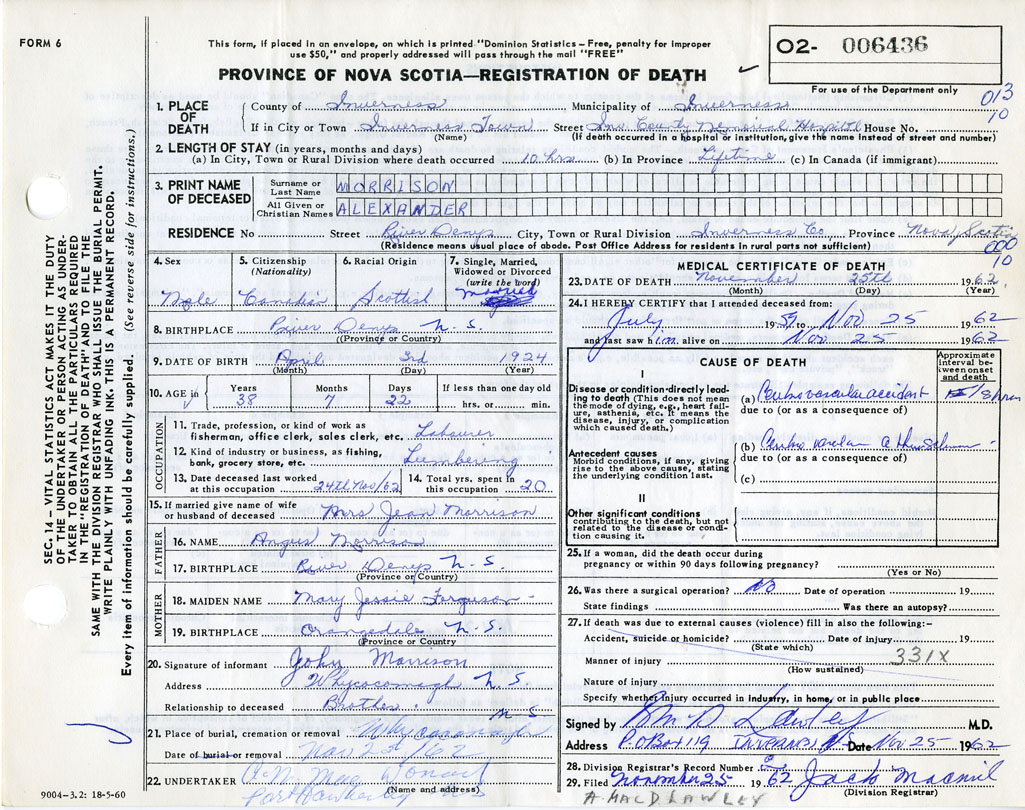 FORM 6
This form, if placed in an envelope, on which is printed "Dominion Statistics – Free, penalty for improper
use $50," and properly addressed will pass through the mail "FREE"
O2- 006436
PROVINCE OF NOVA SCOTIA—REGISTRATION OF DEATH
For use of the Department only
013
10
SEC. 14 – VITAL STATISTICS ACT MAKES IT THE DUTY
OF THE UNDERTAKER OR PERSON ACTING AS UNDER-
TAKER TO OBTAIN ALL THE PARTICULARS REQUIRED
IN THE "REGISTRATION OF DEATH" AND TO FILE THE
SAME WITH THE DIVISION REGISTRAR WHO SHALL ISSUE THE BURIAL PERMIT.
WRITE PLAINLY WITH UNFADING INK. THIS IS A PERMANENT RECORD.
Every item of information should be carefully supplied. (See reverse side for instructions.)
1. PLACE OF DEATH
County of Inverness Municipality of Inverness
If in City or Town Inverness Town Street Inv. County Memorial Hospital House No.
(Name) (If death occurred in a hospital or institution, give the name instead of street and number)
2. LENGTH OF STAY (in years, months and days)
(a) In City, Town or Rural Division where death occurred 10 hrs (b) In Province Lifetime (c) In Canada (if immigrant)
3. PRINT NAME OF DECEASED
Surname or Last Name MORRISON
All Given or Christian Names ALEXANDER
RESIDENCE No Street River Denys City, Town or Rural Division Inverness Co. Province Nova Scotia
(Residence means usual place of abode. Post Office Address for residents in rural parts not sufficient)
000
10
4. Sex Male
5. Citizenship (Nationality) Canadian
6. Racial Origin Scottish
7. Single, Married, Widowed or Divorced (write the word) married
8. BIRTHPLACE River Denys N.S.
(Province or Country)
9. DATE OF BIRTH April 3rd 1924
(Month) (Day) (Year)
10. AGE in Years 38 Months 7 Days 22 If less than one day old hrs. or min.
OCCUPATION
11. Trade, profession, or kind of work as
fisherman, office clerk, sales clerk, etc. Labourer
12. Kind of industry or business, as fishing,
bank, grocery store, etc. Lumbering
13. Date deceased last worked
at this occupation 24th Nov/62
14. Total yrs. spent in
this occupation 20
15. If married give name of wife
or husband of deceased Mrs Jean Morrison
FATHER
16. NAME Angus Morrison
17. BIRTHPLACE River Denys N.S.
(Province or Country)
MOTHER
18. MAIDEN NAME Mary Jessie Ferguson
19. BIRTHPLACE Orangedale N.S.
(Province or Country)
20. Signature of informant John Morrison
Address Whycocomagh N.S.
Relationship to deceased Brother.
21. Place of burial, cremation or removal Whycocomagh N S
Date of burial or removal Nov /62
22. UNDERTAKER
Port Hawkesbury NS
(Name and address)
9004–3.2: 18-5-60
MEDICAL CERTIFICATE OF DEATH
23. DATE OF DEATH November 25th 1962
(Month) (Day) (Year)
24. I HEREBY CERTIFY that I attended deceased from:
July 1959 to Nov 25 1962
and last saw him alive on Nov 25 1962
CAUSE OF DEATH
Approximate interval between onset and death
I
Disease or condition directly lead-
ing to death (This does not mean
the mode of dying, e.g., heart fail-
ure, asthenia, etc. It means the
disease, injury, or complication
which caused death).
(a) Cerebro vascular accident 18 hrs
due to (or as a consequence of)
Antecedent causes
Morbid conditions, if any, giving
rise to the above cause, stating
the underlying condition last.
(b) Cerebro vascular
due to (or as a consequence of)
(c)
II
Other significant conditions
contributing to the death, but not
related to the disease or condi-
tion causing it.
25. If a woman, did the death occur during
pregnancy or within 90 days following pregnancy?
(Yes or No)
26. Was there a surgical operation? NO Date of operation 19
State findings Was there an autopsy?
27. If death was due to external causes (violence) fill in also the following:–
Accident, suicide or homicide? Date of injury 19
(State which)
Manner of injury 331X
(How sustained)
Nature of injury
Specify whether injury occurred in industry, in home, or in public place
Signed by Lawley M.D.
Address P.O Box 119 INVERNESS N.S Date Nov 25 1962
28. Division Registrar's Record Number
29. Filed November 25 1962 Jack Macneil
(Division Registrar)
A. MAC D. LAWLEY